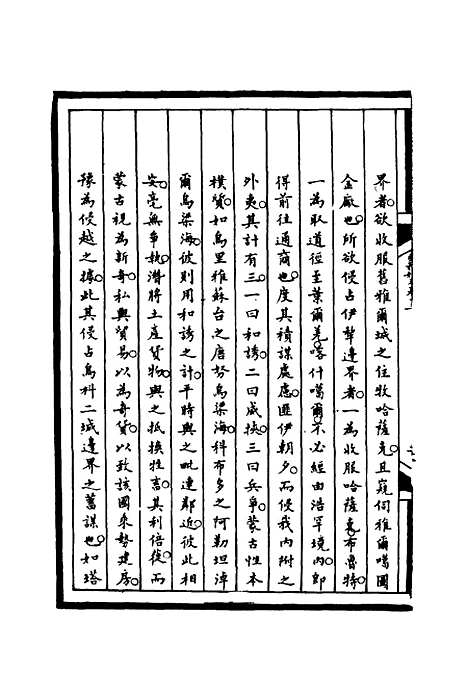 界者欲收服舊雅爾城之住牧哈薩克且窺伺雅爾噶圖
金廠也所欲侵占伊犂邊界者一為收服哈薩克布魯特
一為取道徑至葉爾羌喀什噶爾不必經由浩罕境內即
得前往通商也度其積謀處慮匪伊朝夕而侵我內附之
外夷其計有三一曰和誘二曰威挾三曰兵爭蒙古性本
樸質如烏里雅蘇台之唐努烏梁海科布多之阿勒坦淖
爾烏梁海彼則用和誘之計平時與之毗連鄰近彼此相
安毫無爭執潛將土產貨物與之抵換牲畜其利倍復而
蒙古視為新奇私與貿易以為奇貨以致該國乘勢建房
豫為侵越之據此其侵占烏科二城邊界之蓄謀也如塔